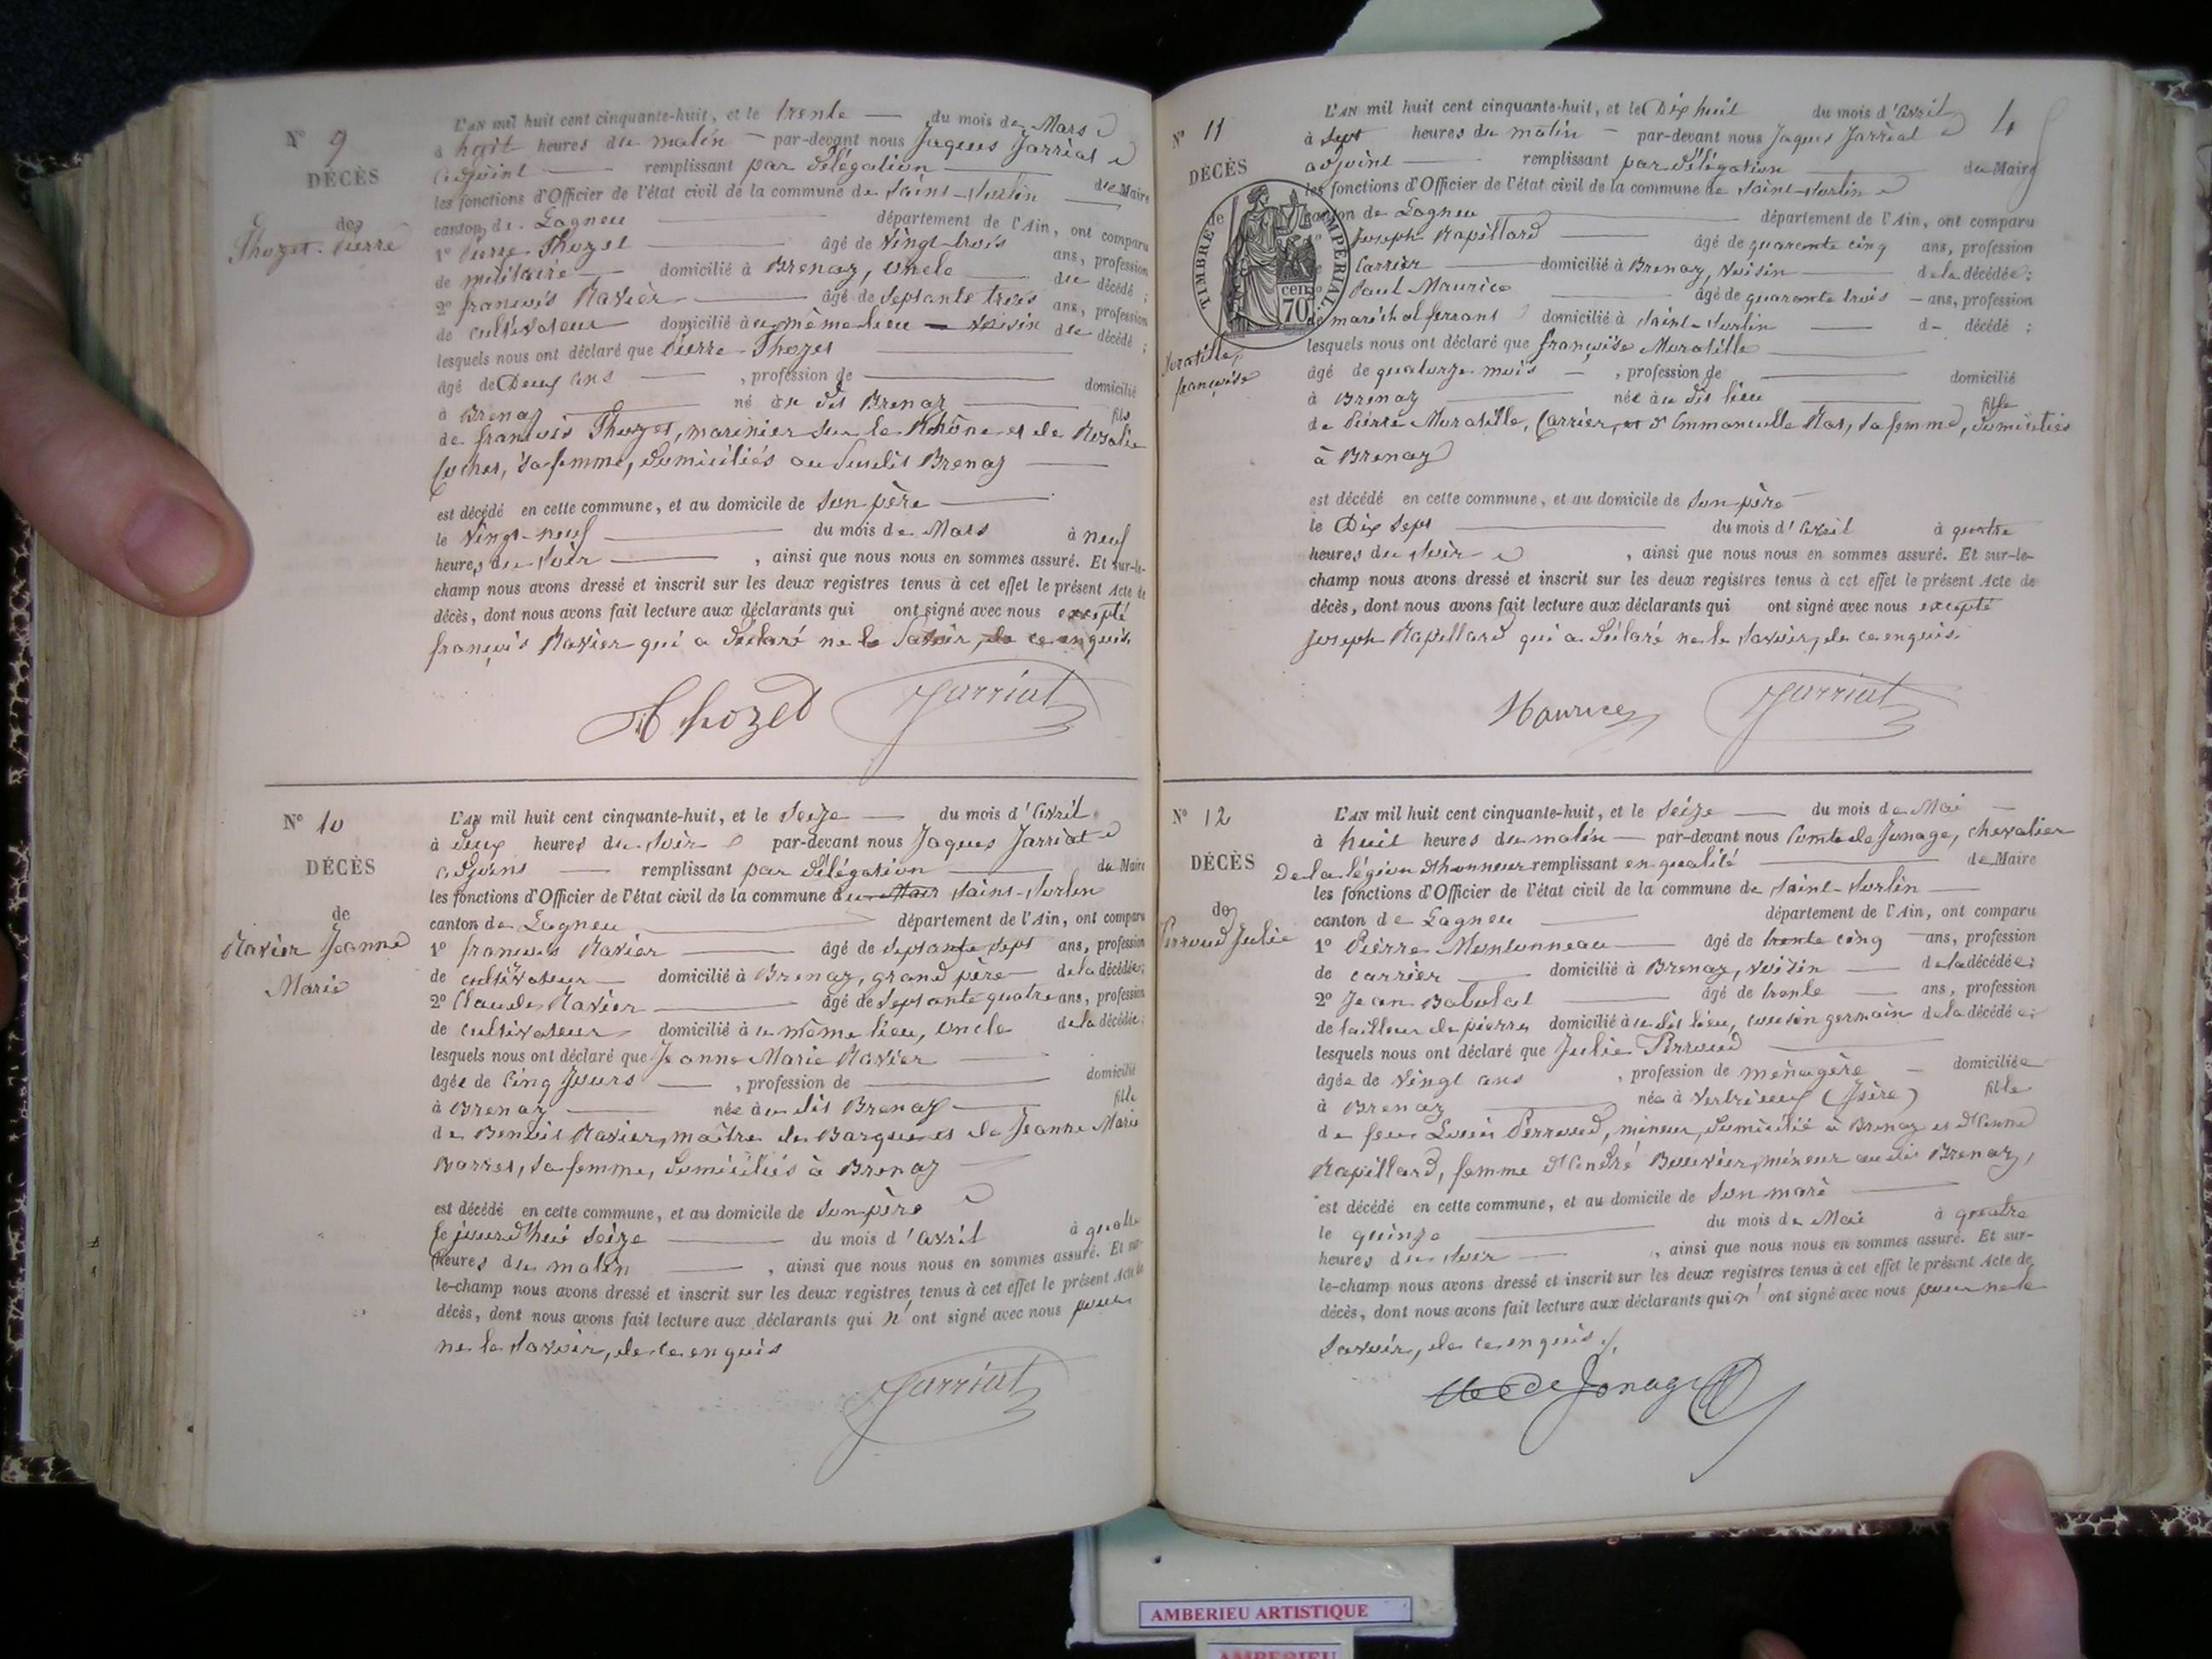 N° 9
DÉCÈS
de
Thozet Pierre
L'AN mil huit cent cinquante-huit, et le trente du mois de Mars
à huit heures du matin par-devant nous Jaques Jarriat
adjoint remplissant par délégation du Maire
les fonctions d'Officier de l'état civil de la commune de Saint-Sorlin
canton de Lagneu département de l'Ain, ont comparu
1° Pierre Thozet âgé de vingt-trois ans, profession
de militaire domicilié à Brenaz, oncle du décédé ;
2° françois Ravier âgé de septante trois ans, profession
de cultivateur domicilié au même lieu voisin du décédé ;
lesquels nous ont déclaré que Pierre Thozet
âgé de Deux ans , profession de domicilié
à Brenaz né au dit Brenaz fils
de françois Thozet, marinier sur le Rhône et de Rozalie
Cochet, sa femme, domiciliés au susdit Brenaz
est décédé en cette commune, et au domicile de son père
le vingt-neuf du mois de Mars à neuf
heures du soir , ainsi que nous nous en sommes assuré. Et sur-le-
champ nous avons dressé et inscrit sur les deux registres tenus à cet effet le présent Acte de
décès, dont nous avons fait lecture aux déclarants qui ont signé avec nous excepté
françois Ravier qui a déclaré ne le savoir, de ce enquis.
Thozet Jarriat
N° 10
DÉCÈS
de
Ravier Jeanne
Marie
L'AN mil huit cent cinquante-huit, et le seize du mois d'avril
à deux heures du soir par-devant nous Jaques Jarriat
adjoint remplissant par délégation du Maire
les fonctions d'Officier de l'état civil de la commune de Saint-Sorlin
canton de Lagneu département de l'Ain, ont comparu
1° françois Ravier âgé de septante sept ans, profession
de cultivateur domicilié à Brenaz, grand père de la décédée;
2° Claude Ravier âgé de septante quatre ans, profession
de cultivateur domicilié au même lieu, oncle de la décédée;
lesquels nous ont déclaré que Jeanne Marie Ravier
âgée de Cinq Jours , profession de domicilié
à Brenaz née au dit Brenaz fille
de Benoit Ravier, maître de Barques et de Jeanne Marie
Barret, sa femme, domiciliés à Brenaz
est décédé en cette commune, et au domicile de son père
ce jourd'hui seize du mois d'avril à quatre
heures du matin , ainsi que nous nous en sommes assuré. Et sur-
le-champ nous avons dressé et inscrit sur les deux registres tenus à cet effet le présent Acte de
décès, dont nous avons fait lecture aux déclarants qui n'ont signé avec nous pour
ne le savoir, de ce enquis
Jarriat
4
N° 11
DÉCÈS
TIMBRE IMPÉRIAL
70 cen
de
Moratille
françoise
L'AN mil huit cent cinquante-huit, et le Dix huit du mois d'avril
à sept heures du matin par-devant nous Jaques Jarriat
adjoint remplissant par délégation du Maire
les fonctions d'Officier de l'état civil de la commune de Saint-Sorlin
canton de Lagneu département de l'Ain, ont comparu
Joseph Rapillard âgé de quarante cinq ans, profession
Carrier domicilié à Brenaz, voisin de la décédée;
Paul Maurice âgé de quarante trois ans, profession
de maréchal ferrant domicilié à Saint-Sorlin d décédé ;
lesquels nous ont déclaré que françoise Moratille
âgé de quatorze mois , profession de domicilié
à Brenaz née au dit lieu fille
de Pierre Moratille, Carrier, et d'Emmanuelle Mas, sa femme, domiciliés
à Brenaz
est décédé en cette commune, et au domicile de son père
le Dix sept du mois d'avril à quatre
heures du soir , ainsi que nous nous en sommes assuré. Et sur-le-
champ nous avons dressé et inscrit sur les deux registres tenus à cet effet le présent Acte de
décès, dont nous avons fait lecture aux déclarants qui ont signé avec nous excepté
Joseph Rapillard qui a déclaré ne le savoir, de ce enquis.
Maurice Jarriat
N° 12
DÉCÈS
de
Perroud Julie
L'AN mil huit cent cinquante-huit, et le seize du mois de Mai
à huit heures du matin par-devant nous Comte de Jonage, chevalier
de la légion d'honneur remplissant en qualité de Maire
les fonctions d'Officier de l'état civil de la commune de Saint-Sorlin
canton de Lagneu département de l'Ain, ont comparu
1° Pierre Montonneau âgé de trente cinq ans, profession
de carrier domicilié à Brenaz, voisin de la décédée;
2° Jean Babolat âgé de trente ans, profession
de tailleur de pierres domicilié au dit lieu, cousin germain de la décédée;
lesquels nous ont déclaré que Julie Perroud
âgée de vingt ans , profession de ménagère domiciliée
à Brenaz née à Vertrieux (Isère) fille
de feu Louis Perroud, mineur, domicilié à Brenaz et d'Anne
Rapillard, femme d'André Bouvier, mineur au dit Brenaz,
est décédé en cette commune, et au domicile de son mari
le quinze du mois de Mai à quatre
heures du soir , ainsi que nous nous en sommes assuré. Et sur-
le-champ nous avons dressé et inscrit sur les deux registres tenus à cet effet le présent Acte de
décès, dont nous avons fait lecture aux déclarants qui n'ont signé avec nous pour ne le
savoir, de ce enquis
de Jonage
AMBERIEU ARTISTIQUE
AMBERIEU